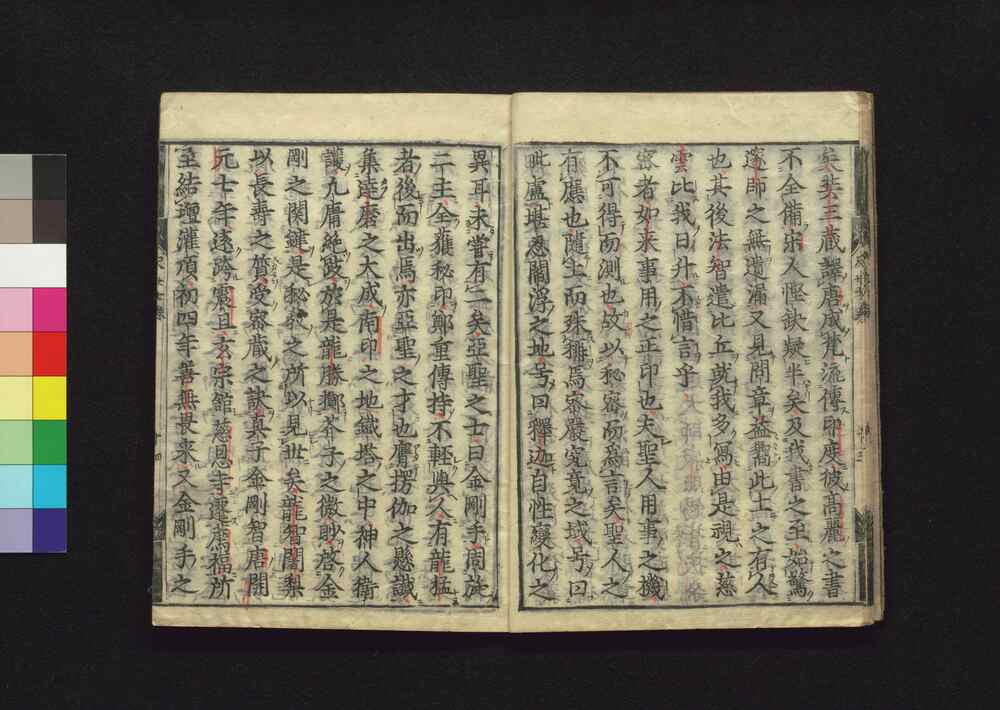 矣奘三藏譯唐成梵流傳印度彼高麗之書
不全備宋人慳缺疑半矣及我書之至始驚
邃師之無遺漏又見問章益嚮此土之有久
也其後法智遣比丘就我多寫由是視之慈
雲比我日升不僭言乎
密者如來事用之正印也夫聖人用事之機
不可得而測也故以秘密而為言矣聖人之
有應也隨土而殊獨焉密嚴究竟之域号曰
毗盧堪忍閻浮之地号曰釋迦自性變化之
異耳未嘗有二矣亞聖之士曰金剛手周旋
二主全蘊秘印鄭重傳持不輕與人有龍猛
者後而出焉亦亞聖之才也膺楞伽之懸讖
集達磨之大成南印之地鐵塔之中神人衛
護九庸絶跂於是龍勝擲芥子之微眇啓金
剛之関鍵是秘教之所以見世矣龍智闍梨
以長壽之質受密藏之訣真子金剛智唐開
元七年遠跨震旦玄宗館慈恩寺遷薦福所
至結壇灌頂初四年善無畏來又金剛手之